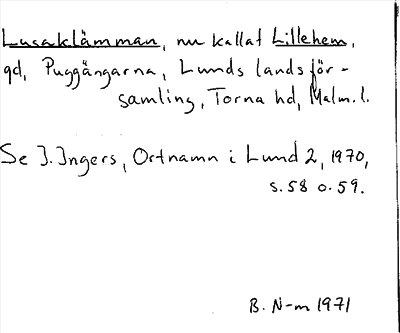 Lusaklämman, nu kallat Lillehem,
gd, Puggängarna, Lunds landsför-
samling, Torna hd, Malm. l.
Se I. Ingers, Ortnamn i Lund 2, 1970,
s. 58 o. 59.
B. N-m 1971